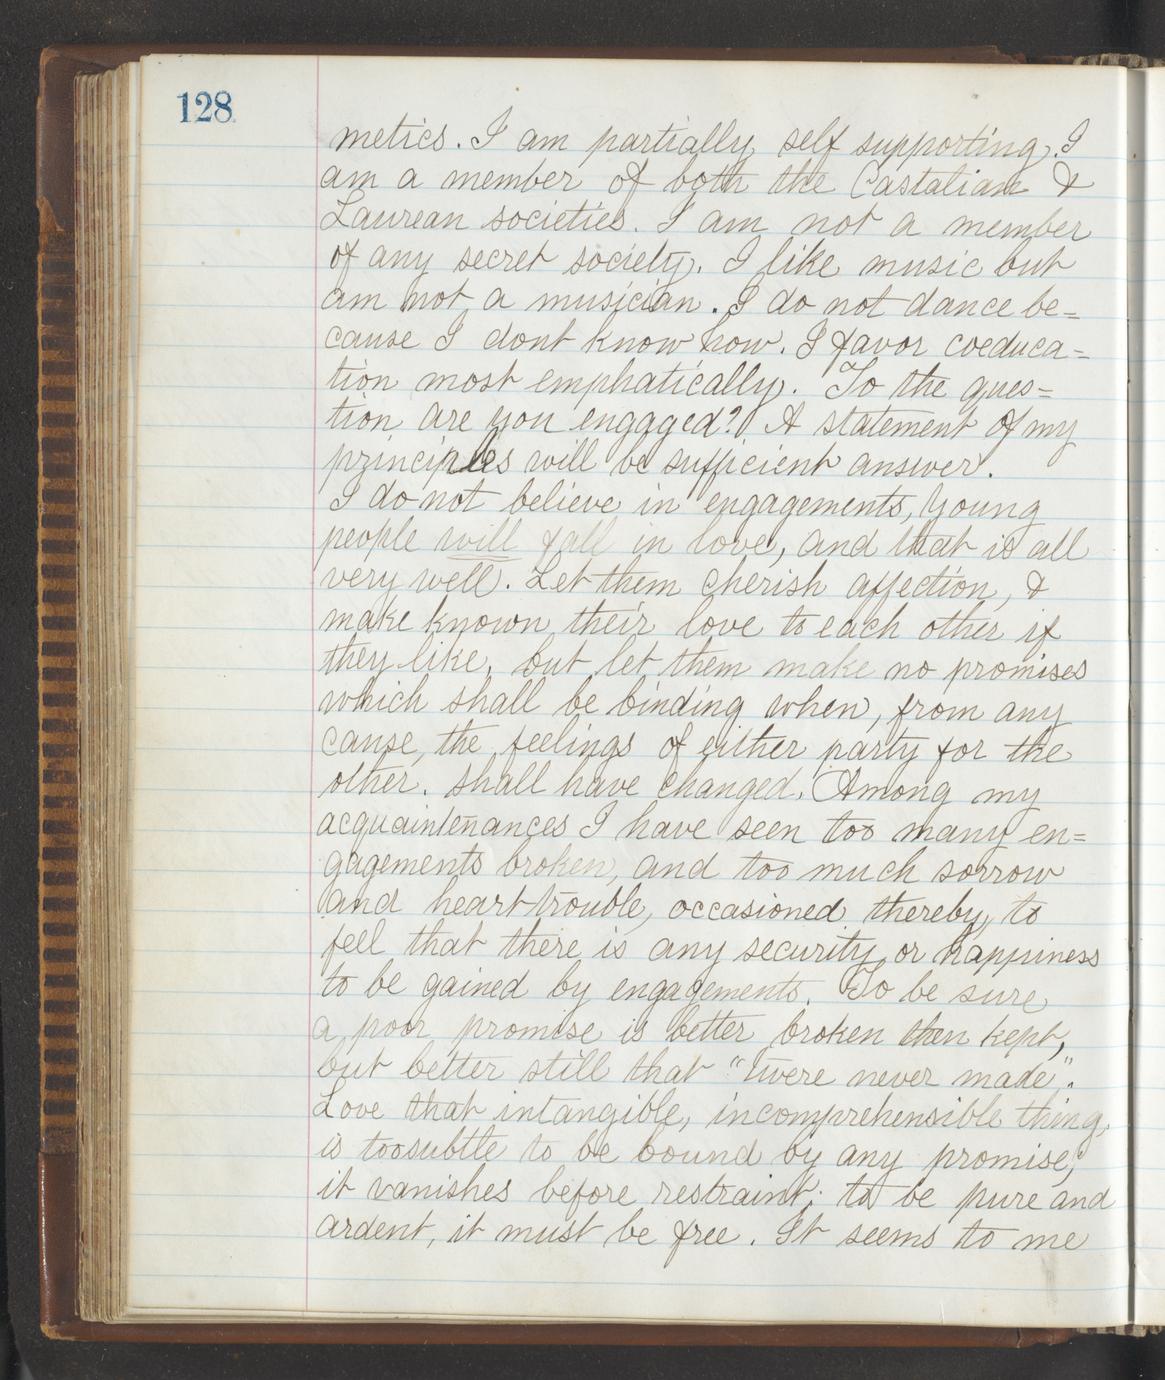 128
metics. I am partially self supporting. I
am a member of both the Castalian &
Laurean societies. I am not a member
of any secret society. I like music but
am not a musician. I do not dance be=
cause I dont know how. I favor coeduca=
tion most emphatically. To the ques=
tion are you engaged? A statement of my
principles will be sufficient answer.
I do not believe in engagements, Young
people will fall in love, and that is all
very well. Let them cherish affection, &
make known their love to each other if
they like, but let them make no promises
which shall be binding when, from any
cause, the feelings of either party for the
other. shall have changed. Among my
acquaintenances I have seen too many en=
gagements broken, and too much sorrow
and heart trouble, occasioned thereby, to
feel that there is any security or happiness
to be gained by engagements. To be sure
a poor promise is better broken then kept,
but better still that "twere never made".
Love that intangible, incomprehensible thing,
is too subtle to be bound by any promise,
it vanishes before restraint; to be pure and
ardent, it must be free. It seems to me